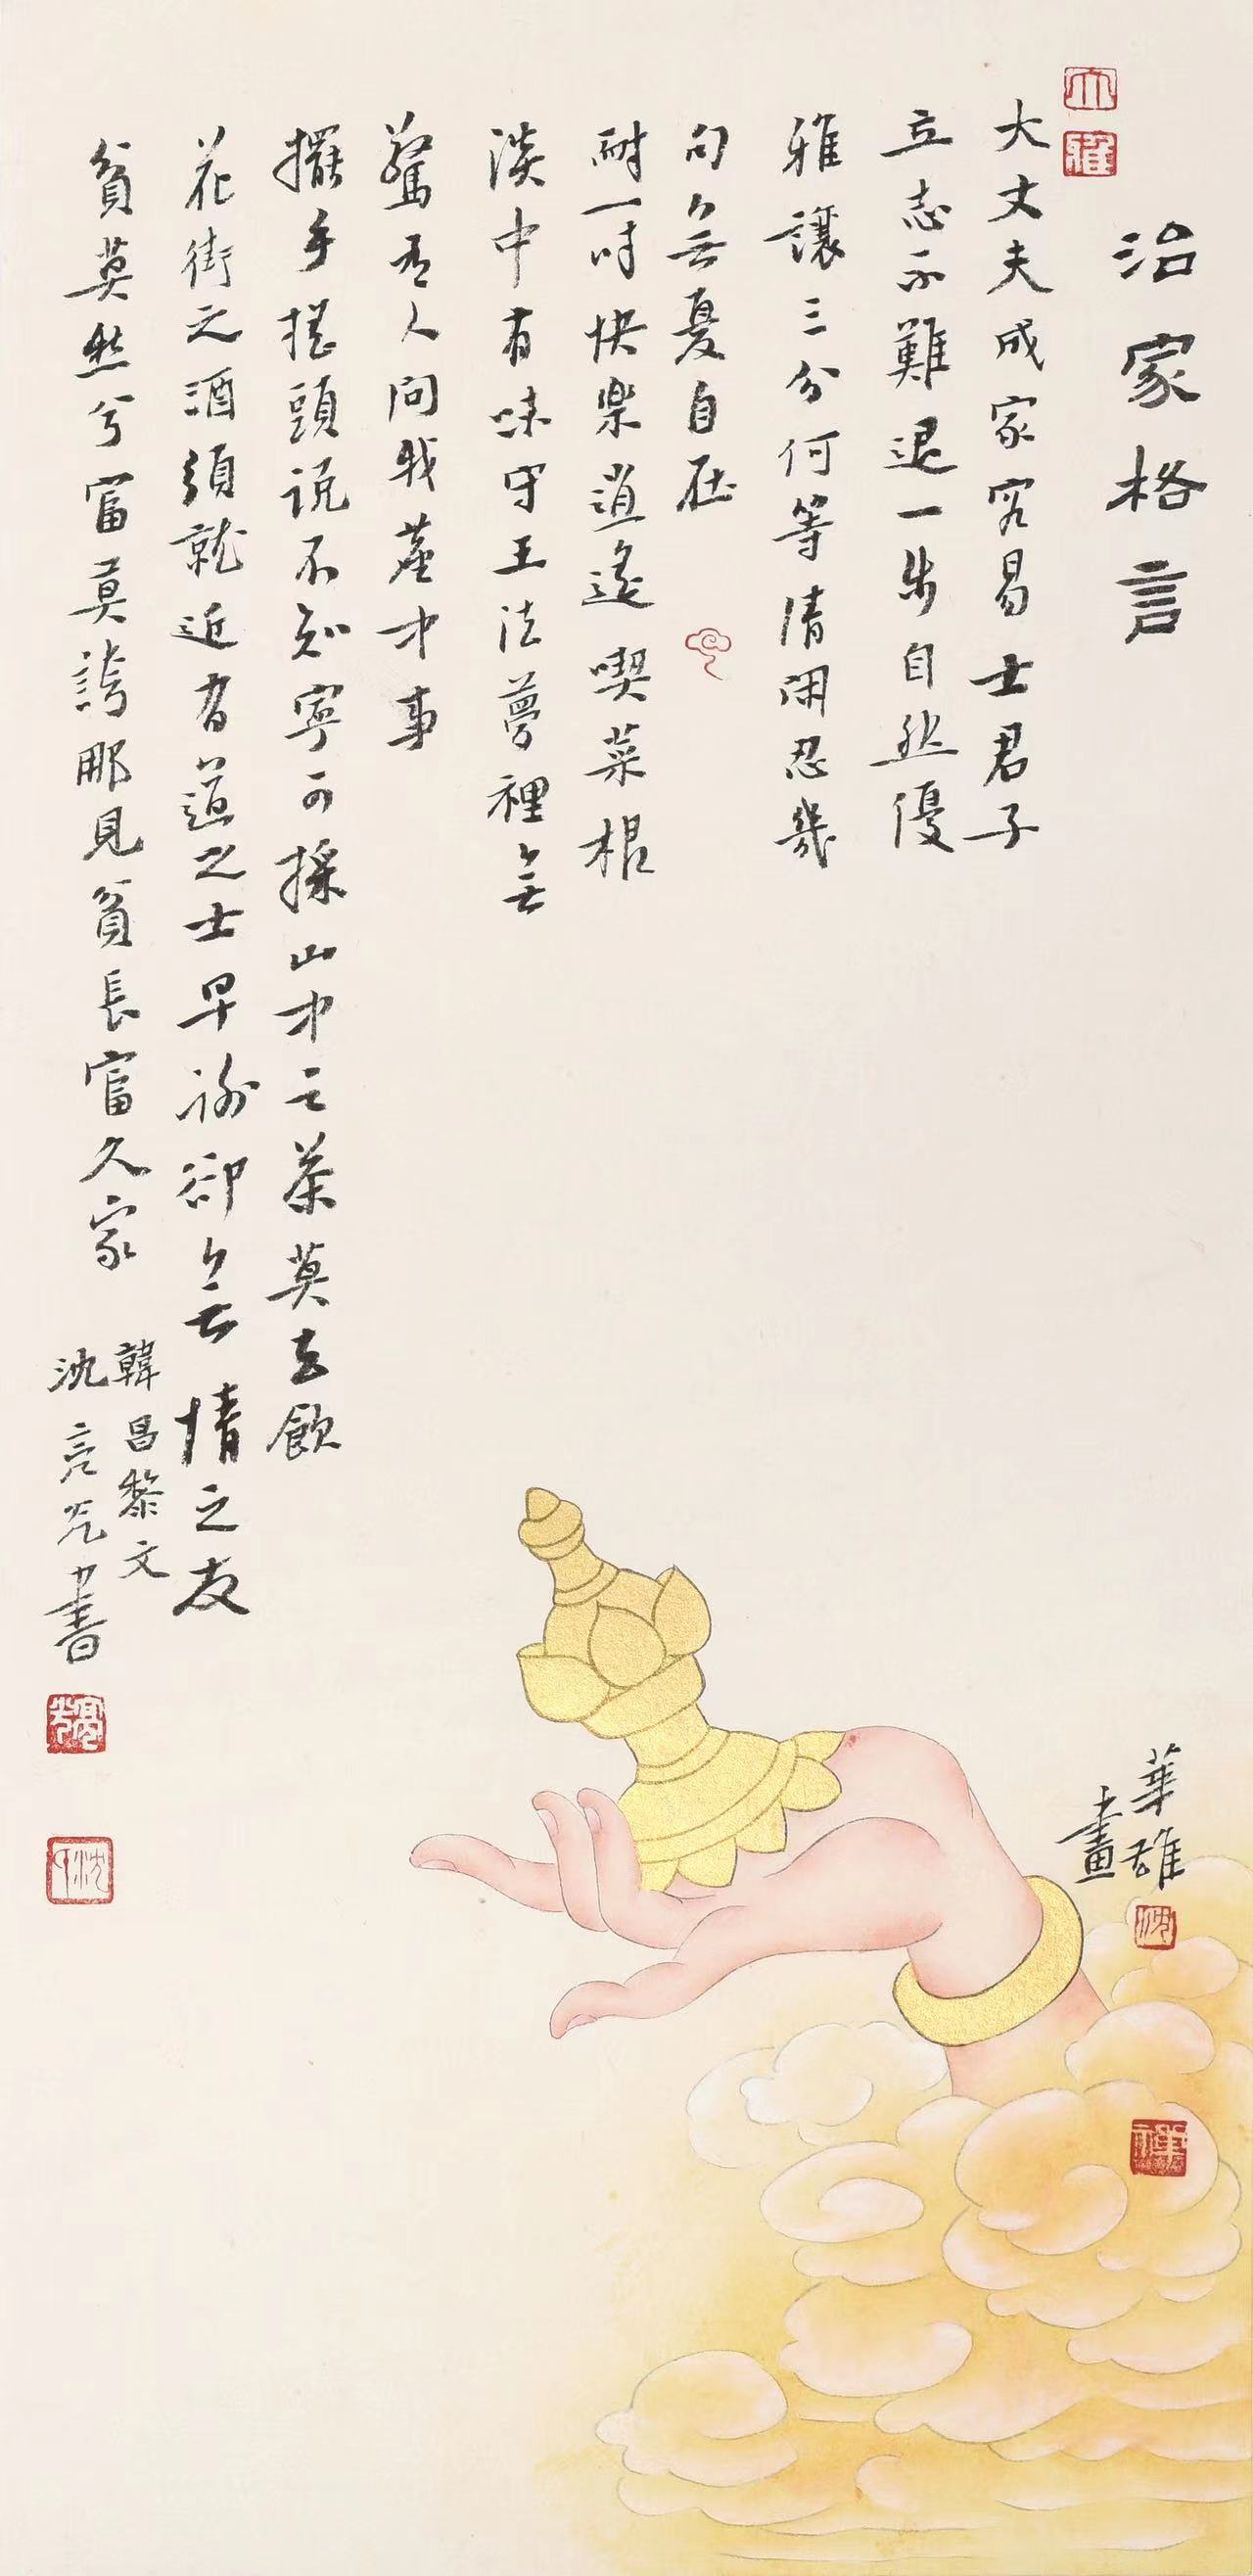 大雅
治家格言
大丈夫成家容易士君子
立志不難退一步自然優
雅讓三分何等清閑忍幾
句無憂自在
耐一時快樂逍遙喫菜根
淡中有味守王法夢裡無
驚有人問我塵中事
擺手搖頭説不知寧可採山中之茶莫去飲
花街之酒須就近有道之士早謝卻無情之友
貧莫愁兮富莫誇那見貧長富久家
韓昌黎文
沈亮光書
華雄
畫